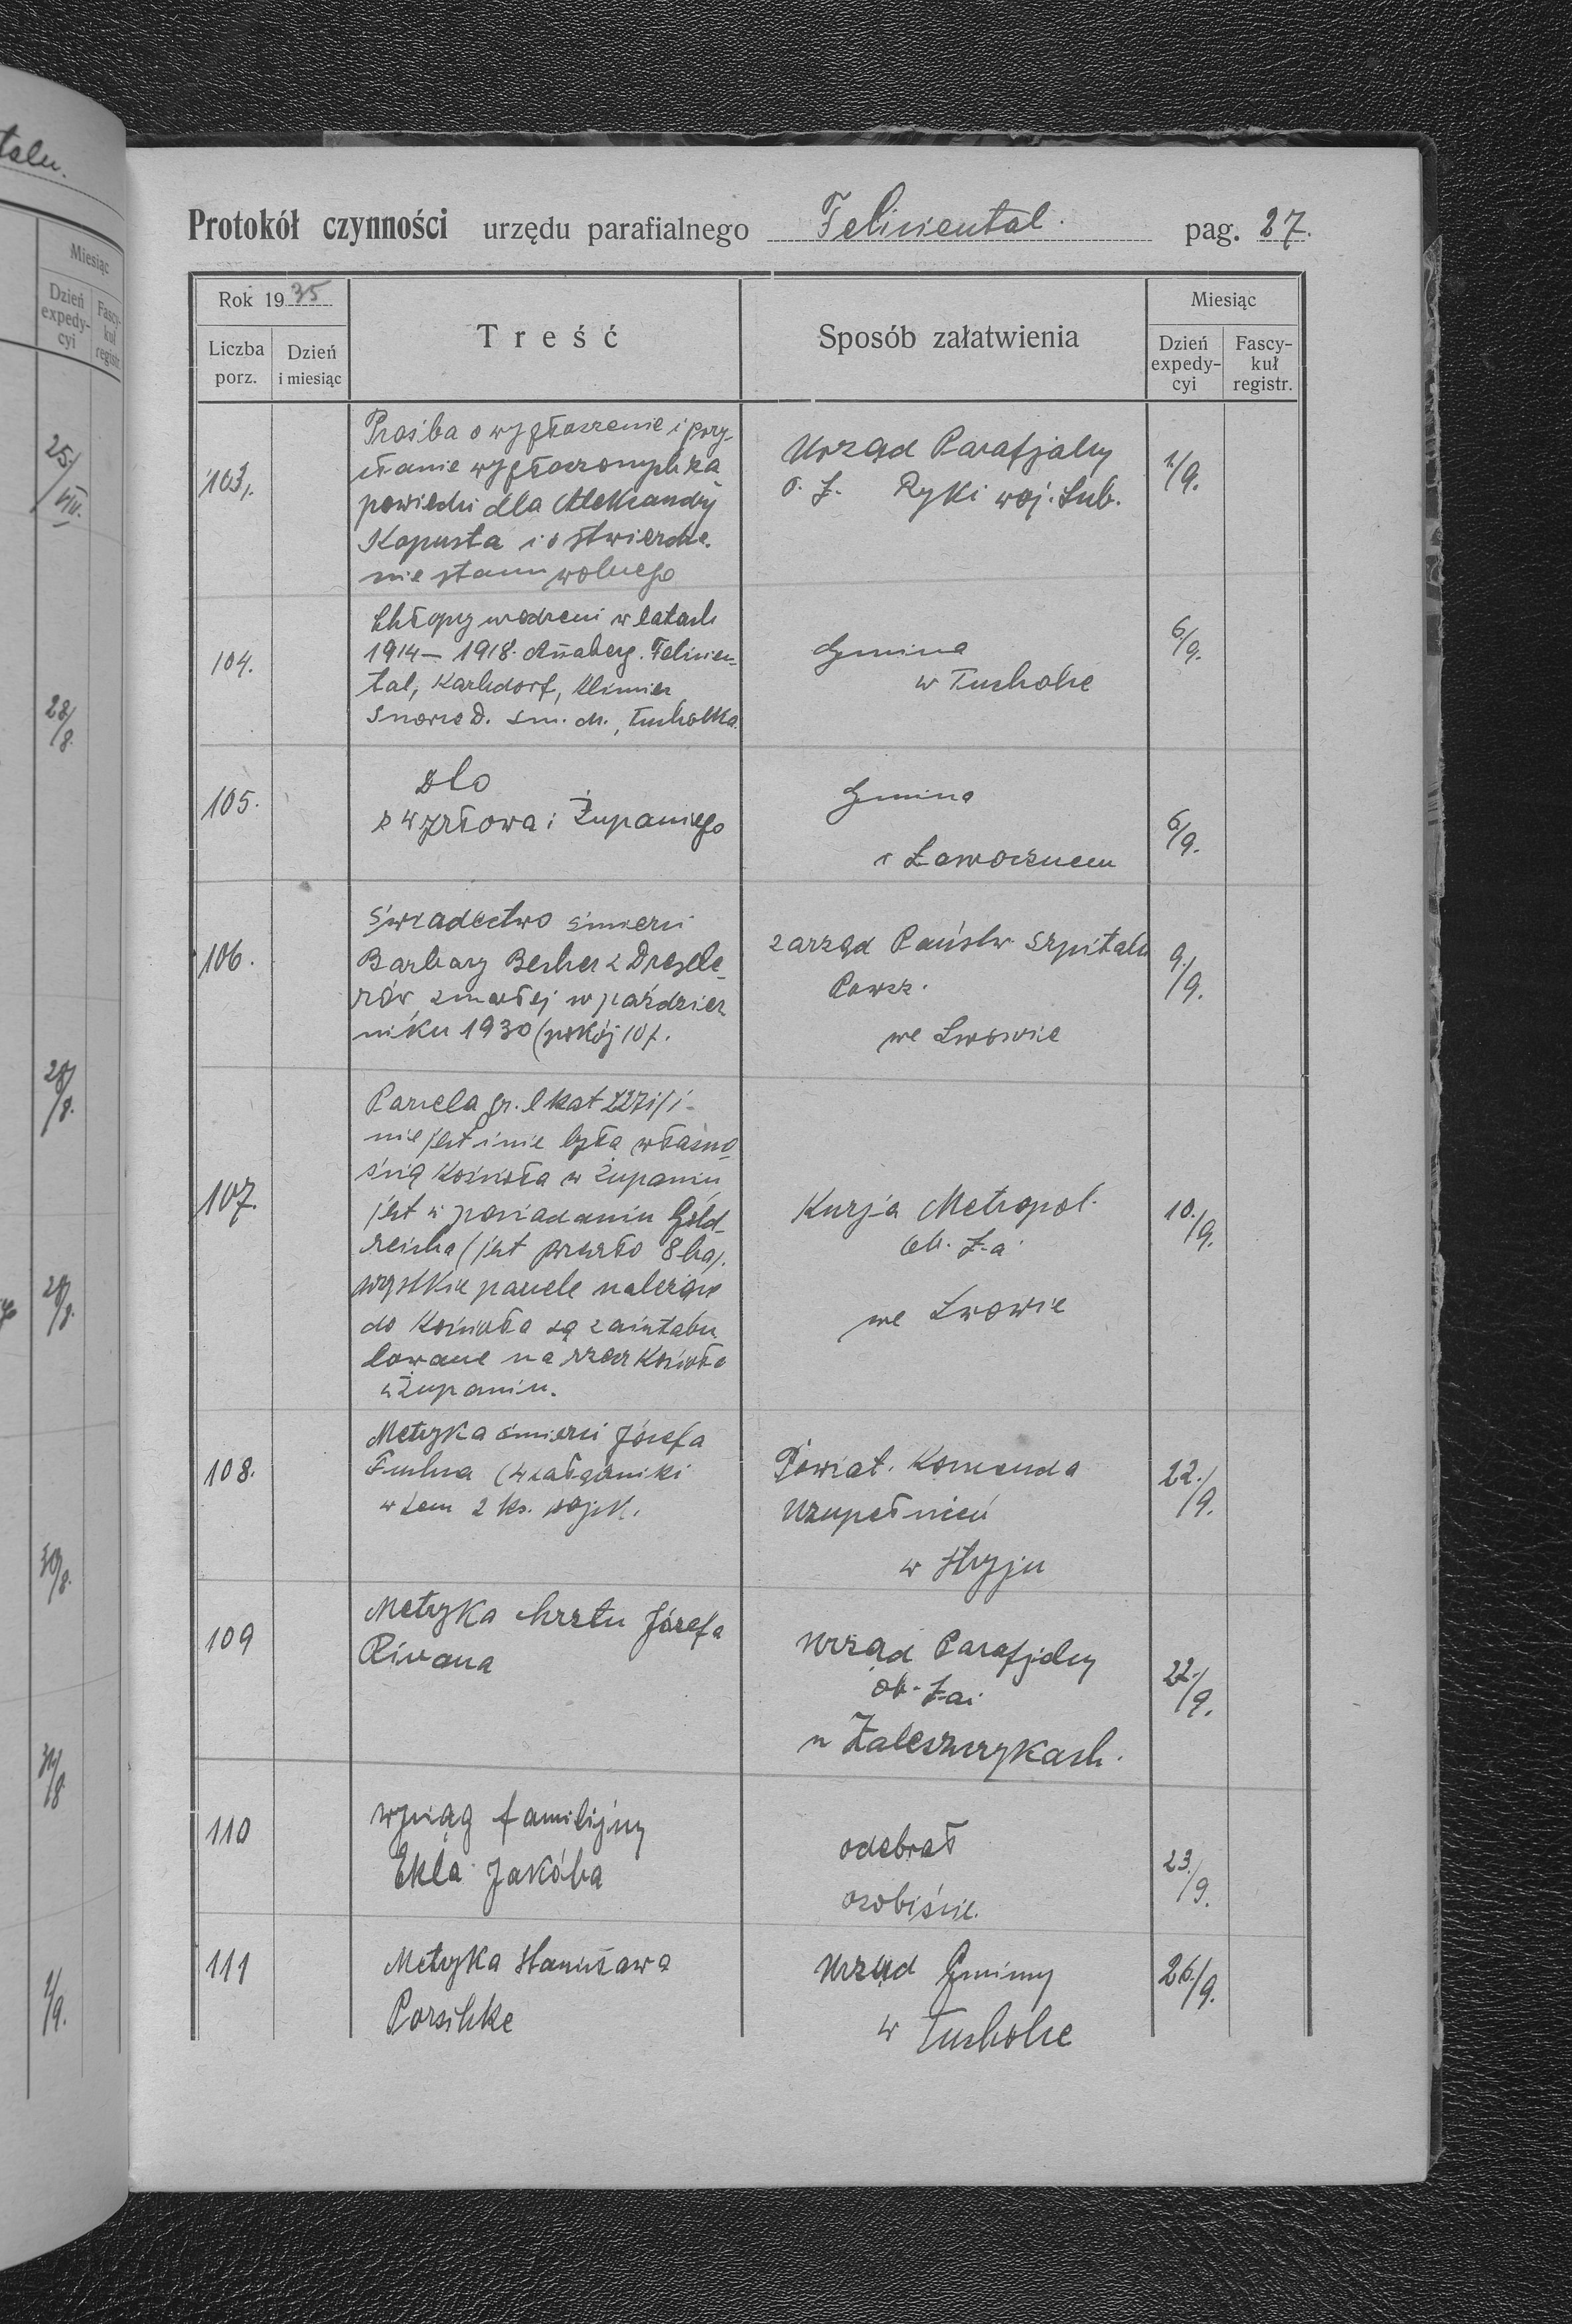 talu.
Miesiąc
Dzień
expedy-
cyi
Fascy-
kuł
registr.
25/VIII.
28/8.
28/8.
28/8.
30/8.
31/8
1/9.
Protokół czynności urzędu parafialnego Feliciental. pag. 27.
Rok 1935
Treść
Sposób załatwienia
Miesiąc
Liczba
porz.
Dzień
i miesiąc
Dzień
expedy-
cyi
Fascy-
kuł
registr.
103.
Prośba o wygłoszenie i przy-
słanie wygłoszonych za
powiedzi dla Aleksandry
Kapusta i o stwierdze-
nie stanu wolnego
Urząd Parafjalny
o. ł. Ryki woj. Lub.
1/9.
104.
Chłopcy urodzeni w latach
1914 – 1918. Annaberg. Felicien-
tal, Karlsdorf, Klimiec
Smorze D. Sm. M., Tucholka
Gmina
w Tucholce
6/9.
105.
dto
z Wyzłowa i Żupaniego
Gmina
w Ławocznem
6/9.
106.
Świadectwo śmierci
Barbary Becher z Dresele-
rów, zmarłej w paździer
niku 1930 (pokój 10).
Zarząd Państw. Szpitala
Powsz.
we Lwowie
9./9.
107.
Parcela gr. l kat
nie jest i nie była własno-
ścią Kościoła w Żupaniu
jest w posiadaniu Gold-
reicha (jest przeszło 8 ha).
wszystkie parcele należące
do Kościoła są zaintabu
lowane na rzecz Kościoła
w Żupaniu.
Kurja Metropol.
ob. ł-a
we Lwowie
10./9.
108.
Metryka śmierci Józefa
Fuchsa (w załączniki
w tem 2 ks. wojsk.
Powiat. Komenda
Uzupełnień
w Stryju
22./9.
109
Metryka chrztu Józefa
Urząd Parafjalny
ob. ł-ai
w Zaleszczykach.
22./9.
110
wyciąg familijny
Ekla Jakóba
odebrał
osobiście.
23./9.
111
Metryka Stanisława
Porschke
Urząd Gminny
w Tucholce
26./9.